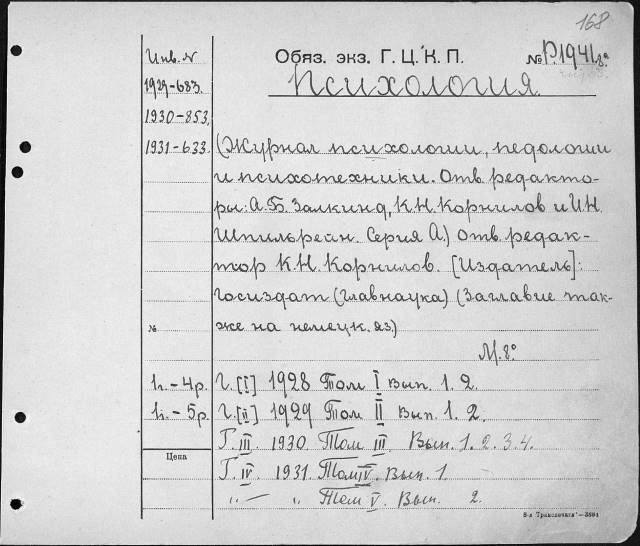 168
Инв. №
Обяз. экз. Г. Ц. К. П.
№ Р.1941 8°
1929-683.
Психология.
1930-853,
1931-633.
(Журнал психологии, педологии
и психотехники. Отв. редакто-
ры: А.Б. Залкинд, К.Н. Корнилов и И.Н.
Шпильрейн. Серия А.) Отв. редак-
тор К.Н. Корнилов. [Издатель]:
Госиздат (Главнаука) (Заглавие так-
№
же на немецк. яз.)
М. 8°
1г.-4р. Г. [I] 1928 Том I Вып. 1. 2.
1г.-5р. Г. [II] 1929 Том II Вып. 1. 2.
Г. III. 1930. Том III. Вып. 1. 2. 3. 4.
Цена
Г. IV. 1931. Том IV. Вып. 1.
„ — „ Том V. Вып. 2.
8-я Транспечати—3894